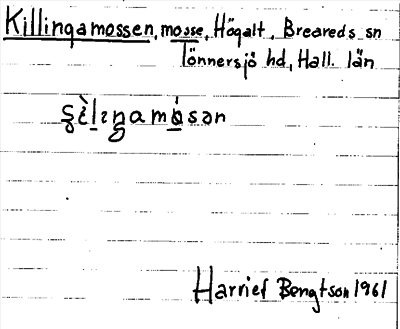 Killingamossen, mosse, Högalt, Breareds sn
Tönnersjö hd, Hall. län
ʂìlıŋamósən
Harriet Bengtson 1961